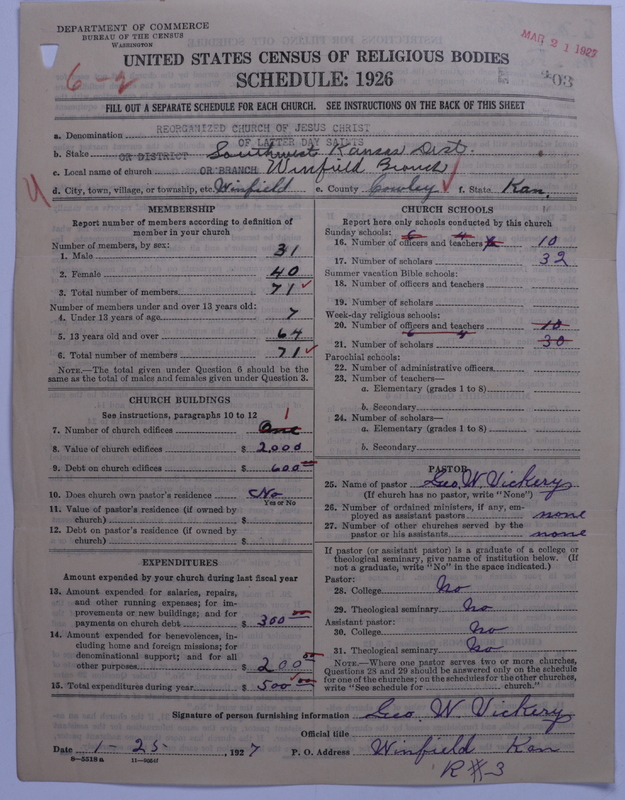 DEPARTMENT OF COMMERCE
BUREAU OF THE CENSUS
WASHINGTON
MAR 21 1927
6-2
UNITED STATES CENSUS OF RELIGIOUS BODIES
SCHEDULE: 1926
FILL OUT A SEPARATE SCHEDULE FOR EACH CHURCH. SEE INSTRUCTIONS ON THE BACK OF THIS SHEET
a. Denomination REORGANIZED CHURCH OF JESUS CHRIST
OF LATTER DAY SAINTS
b. Stake OR DISTRICT Southwest Kansas Dist.
c. Local name of church OR BRANCH Winfield Branch
d. City, town, village, or township, etc. Winfield e. County Cowley f. State Kan.
MEMBERSHIP
Report number of members according to definition of
member in your church
Number of members, by sex:
1. Male 31
2. Female 40
3. Total number of members 71
Number of members under and over 13 years old:
4. Under 13 years of age 7
5. 13 years old and over 64
6. Total number of members 71
NOTE.—The total given under Question 6 should be the
same as the total of males and females given under Question 3.
CHURCH BUILDINGS
See instructions, paragraphs 10 to 12
7. Number of church edifices One 1
8. Value of church edifices $ 2,000
9. Debt on church edifices $ 600
10. Does church own pastor's residence No
Yes or No
11. Value of pastor's residence (if owned by
church) $
12. Debt on pastor's residence (if owned by
church) $
EXPENDITURES
Amount expended by your church during last fiscal year
13. Amount expended for salaries, repairs,
and other running expenses; for im-
provements or new buildings; and for
payments on church debt $ 300 00
14. Amount expended for benevolences, in-
cluding home and foreign missions; for
denominational support; and for all
other purposes $ 200 00
15. Total expenditures during year $ 500 00
CHURCH SCHOOLS
Report here only schools conducted by this church
Sunday schools: 6 4
16. Number of officers and teachers 10
17. Number of scholars 32
Summer vacation Bible schools:
18. Number of officers and teachers
19. Number of scholars
Week-day religious schools:
20. Number of officers and teachers 10
6 4
21. Number of scholars 30
Parochial schools:
22. Number of administrative officers
23. Number of teachers—
a. Elementary (grades 1 to 8)
b. Secondary
24. Number of scholars—
a. Elementary (grades 1 to 8)
b. Secondary
PASTOR
25. Name of pastor Geo. W. Vickery
(If church has no pastor, write "None")
26. Number of ordained ministers, if any, em-
ployed as assistant pastors none
27. Number of other churches served by the
pastor or his assistants none
If pastor (or assistant pastor) is a graduate of a college or
theological seminary, give name of institution below. (If
not a graduate, write "No" in the space indicated.)
Pastor:
28. College No
29. Theological seminary No
Assistant pastor:
30. College No
31. Theological seminary No
NOTE.—Where one pastor serves two or more churches,
Questions 28 and 29 should be answered only on the schedule
for one of the churches; on the schedules for the other churches,
write "See schedule for church."
Signature of person furnishing information Geo. W. Vickery
Official title
Date 1-25-, 1927 P. O. Address Winfield Kan
R#3
8-5518a